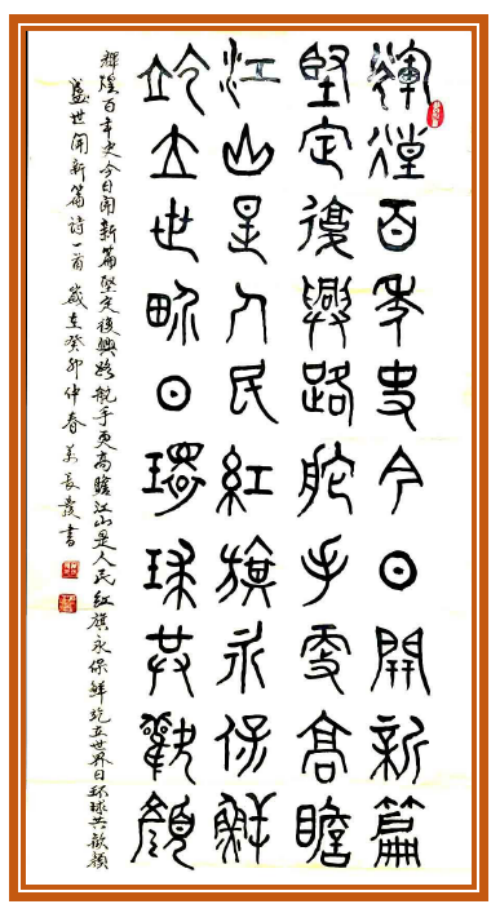 輝煌百年史今日開新篇
堅定復興路舵手更高瞻
江山是人民紅旗永保鮮
屹立世界日環球共歡顏
輝煌百年史今日開新篇堅定復興路舵手更高瞻江山是人民紅旗永保鮮屹立世界日环球共歡顏
盛世開新篇詩一首 歲在癸卯仲春 長發書